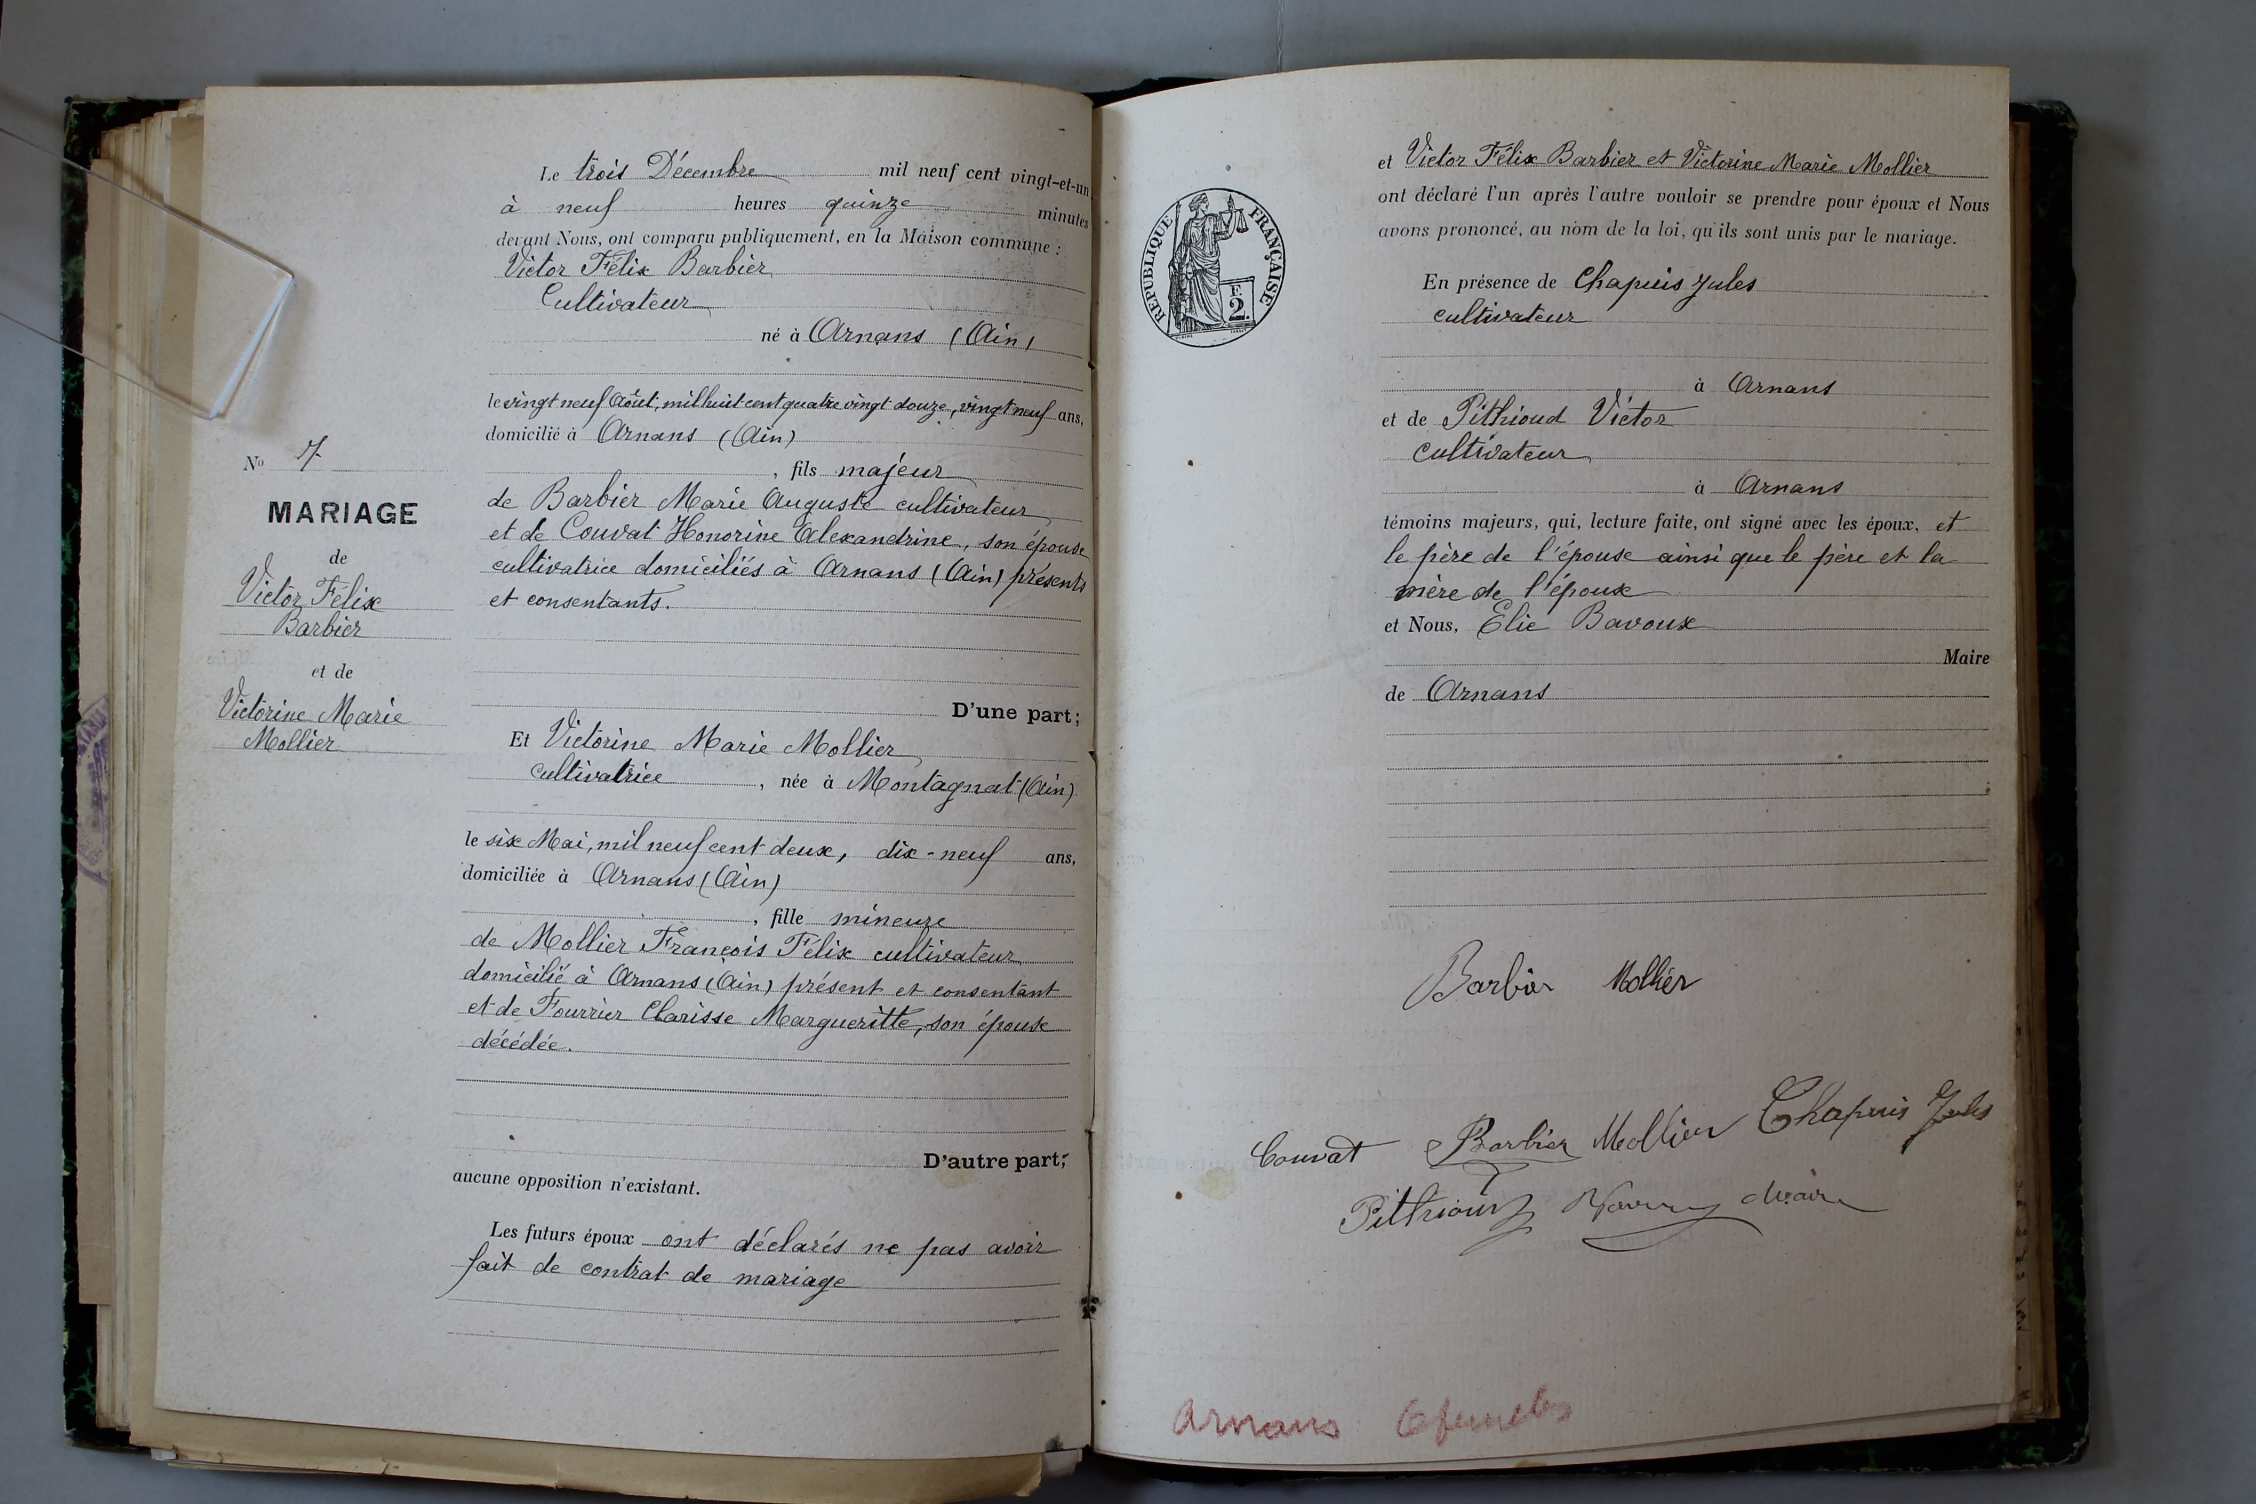 Le trois Décembre mil neuf cent vingt-et-un
à neuf heures quinze minutes
devant Nous, ont comparu publiquement, en la Maison commune :
Victor Félix Barbier
Cultivateur
né à Arnans (Ain)
le vingt neuf Août, mil huit cent quatre vingt douze, vingt neuf ans,
domicilié à Arnans (Ain)
, fils majeur
de Barbier Marie Auguste cultivateur
et de Couvat Honorine Alexandrine, son épouse
cultivatrice domiciliés à Arnans (Ain) présents
et consentants.
D'une part;
Et Victorine Marie Mollier
cultivatrice, née à Montagnat (Ain)
le six Mai, mil neuf cent deux, dix-neuf ans,
domiciliée à Arnans (Ain)
, fille mineure
de Mollier François Félix cultivateur
domicilié à Arnans (Ain) présent et consentant
et de Fourrier Clarisse Margueritte, son épouse
décédée.
D'autre part;
aucune opposition n'existant.
Les futurs époux ont déclarés ne pas avoir
fait de contrat de mariage
No 7
MARIAGE
de
Victor Félix
Barbier
et de
Victorine Marie
Mollier
REPUBLIQUE FRANÇAISE
F.
2.
et Victor Félix Barbier et Victorine Marie Mollier
ont déclaré l'un après l'autre vouloir se prendre pour époux et Nous
avons prononcé, au nom de la loi, qu'ils sont unis par le mariage.
En présence de Chapuis Jules
cultivateur
à Arnans
et de Pithioud Victor
cultivateur
à Arnans
témoins majeurs, qui, lecture faite, ont signé avec les époux, et
le père de l'épouse ainsi que le père et la
mère de l'époux
et Nous, Elie Bavoux
Maire
de Arnans
Barbier Mollier
Couvat Barbier Mollier Chapuis Jules
Pithioud Maire
Arnans